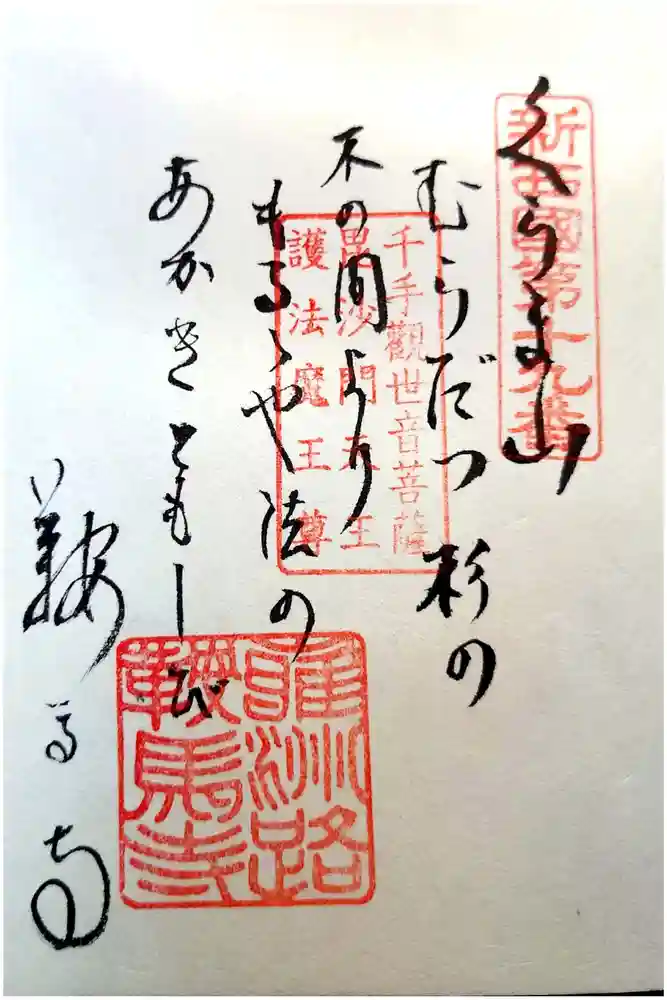 新西國第十九番
くらま山
むらだつ杉の
木の間より
もるゝや法の
あかきともしび
鞍馬寺
千手觀世音菩薩
毘沙門天王
護法魔王尊
雍州路
鞍馬寺